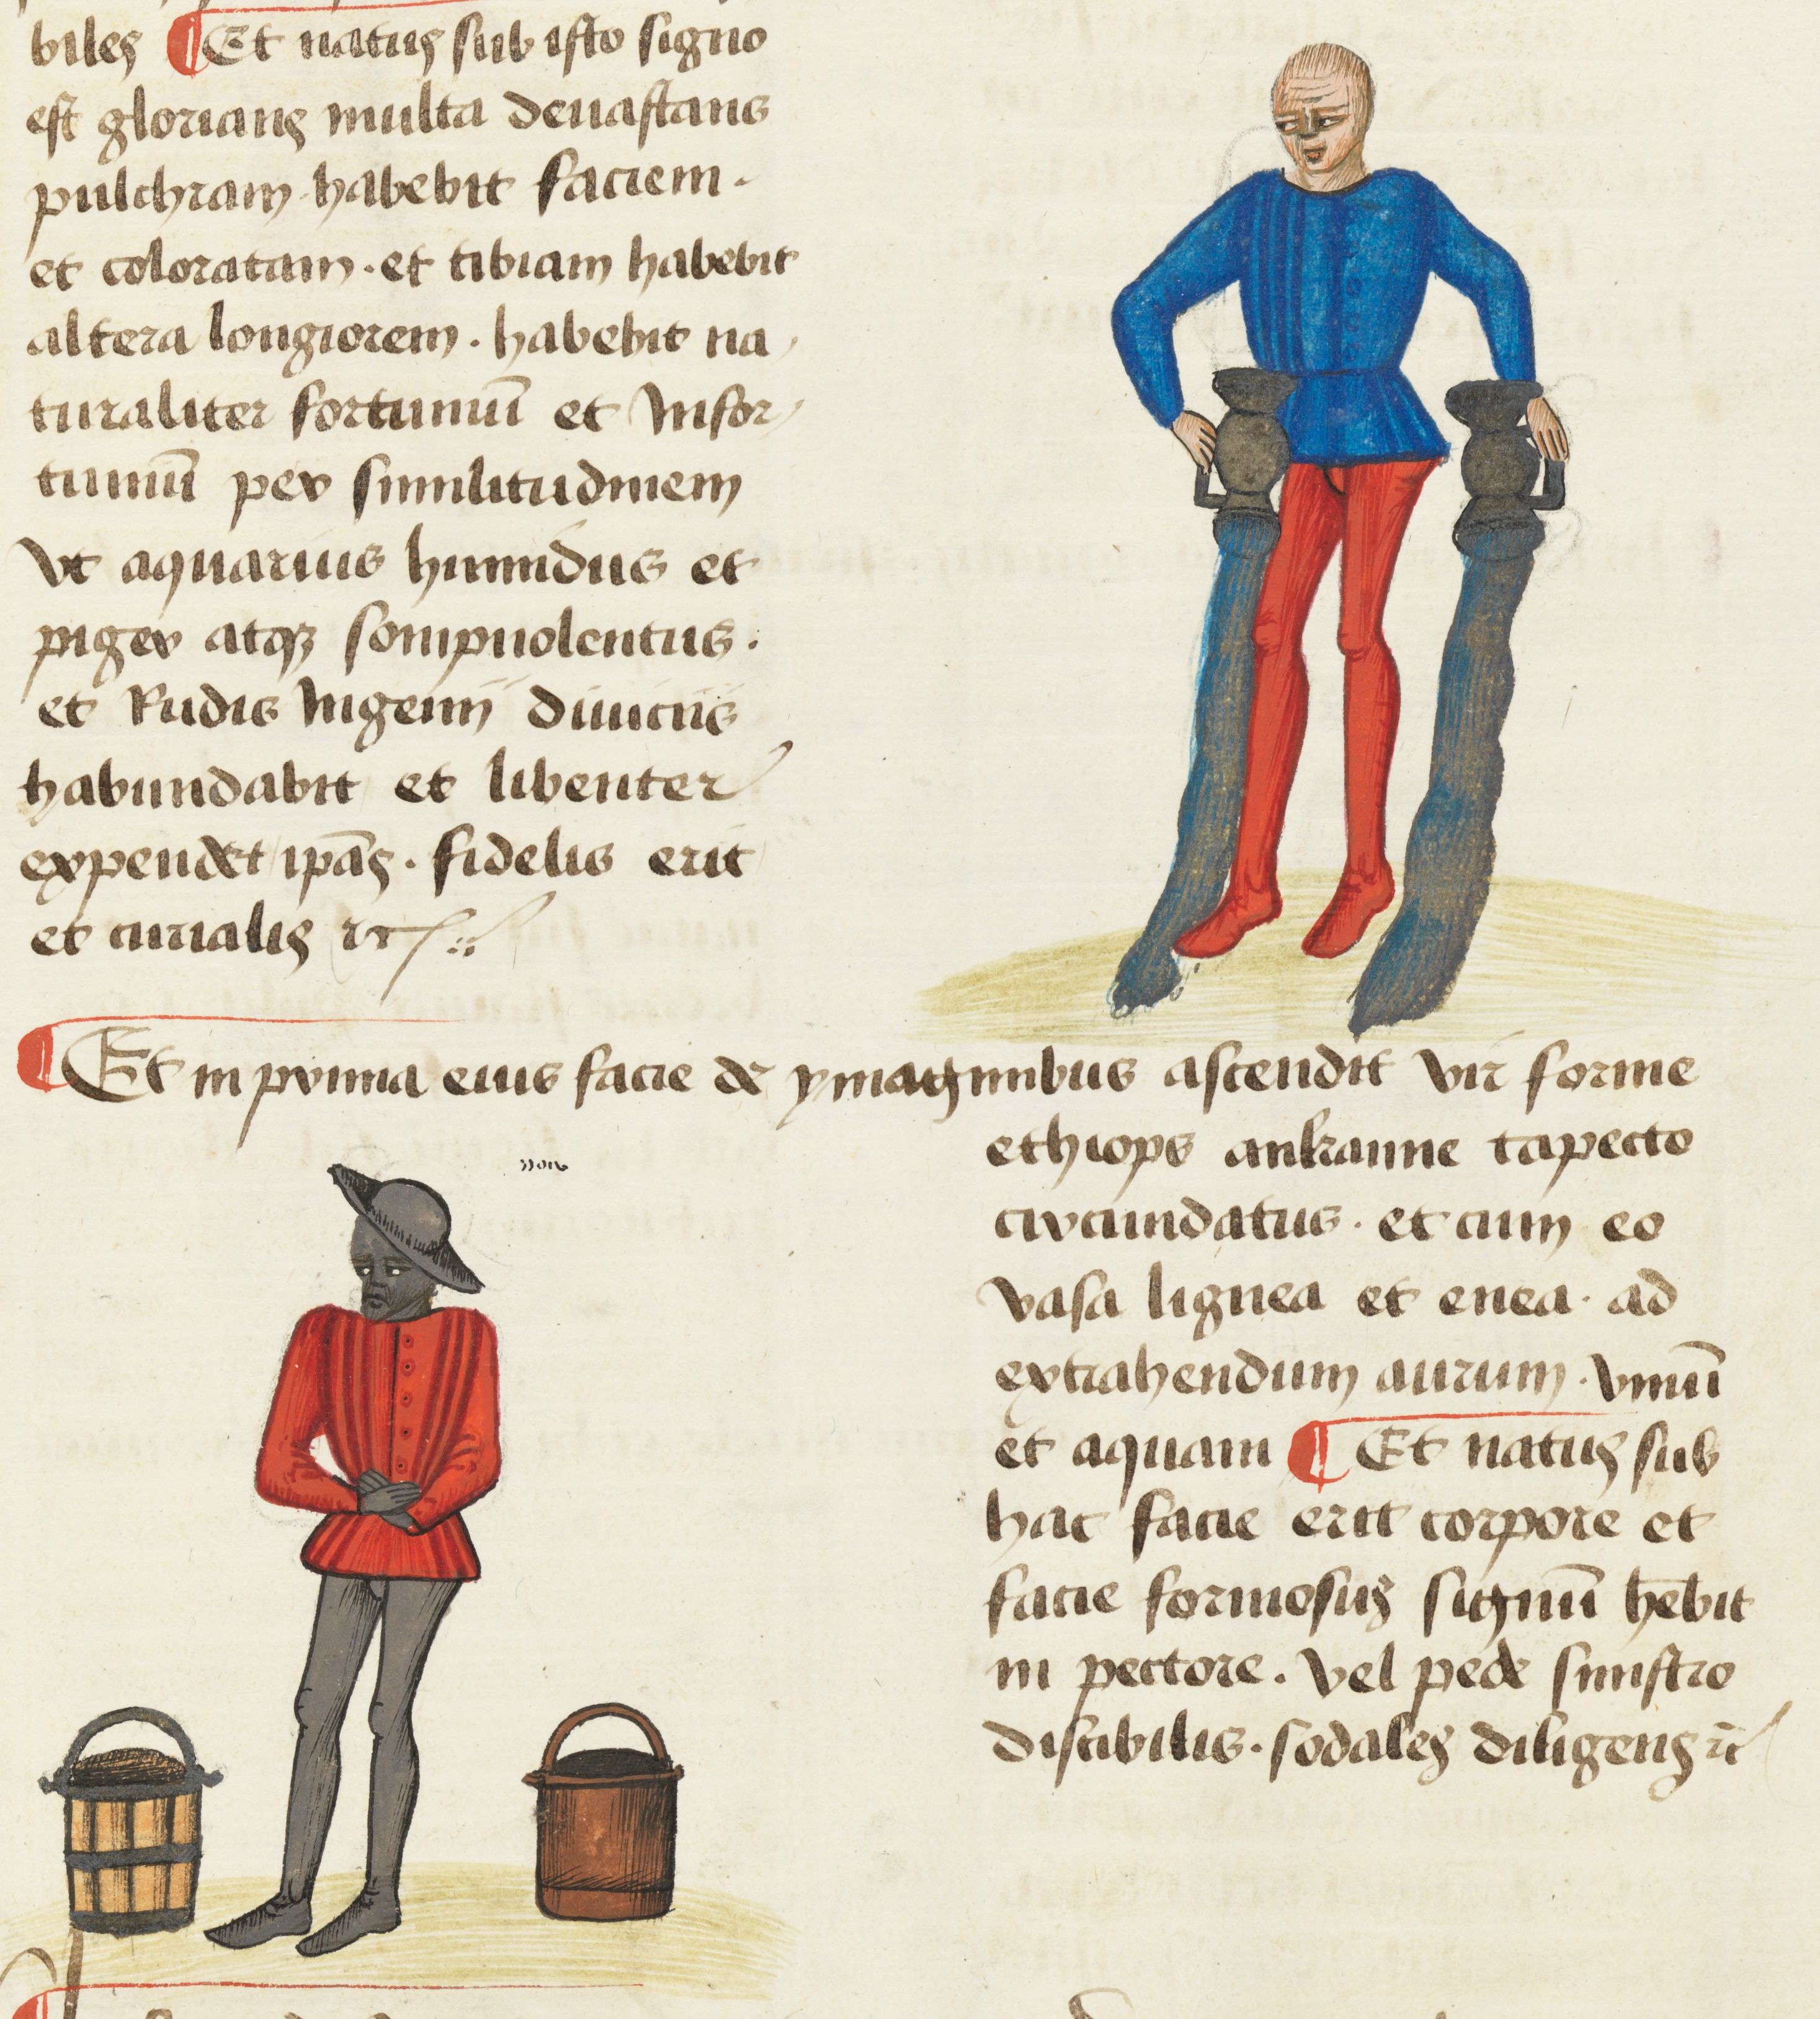 biles Et natus sub isto signo
est glorians multa deuastans
pulchram habebit faciem.
et coloratam. et tibiam habebit
altera longiorem. habebit na
turaliter fortuniū et Infor
tuniū per similitudinem
Vt aquarius humidus et
piger atqꝫ sompnolentus.
et Rudis Ingenij diuiciis
habundabit et libenter
expendet ipās. fidelis erit
et curialis
Et in prima eius facie de ymaginibus ascendit vir forme
ethiops ankanne tapecto
circumdatus. et cum eo
vasa lignea et enea. ad
extrahendum aurum. vinū
et aquam Et natus sub
hac facie erit corpore et
facie formosus signū hēbit
in pectore. vel pede sinistro
discibilis. sodales diligens